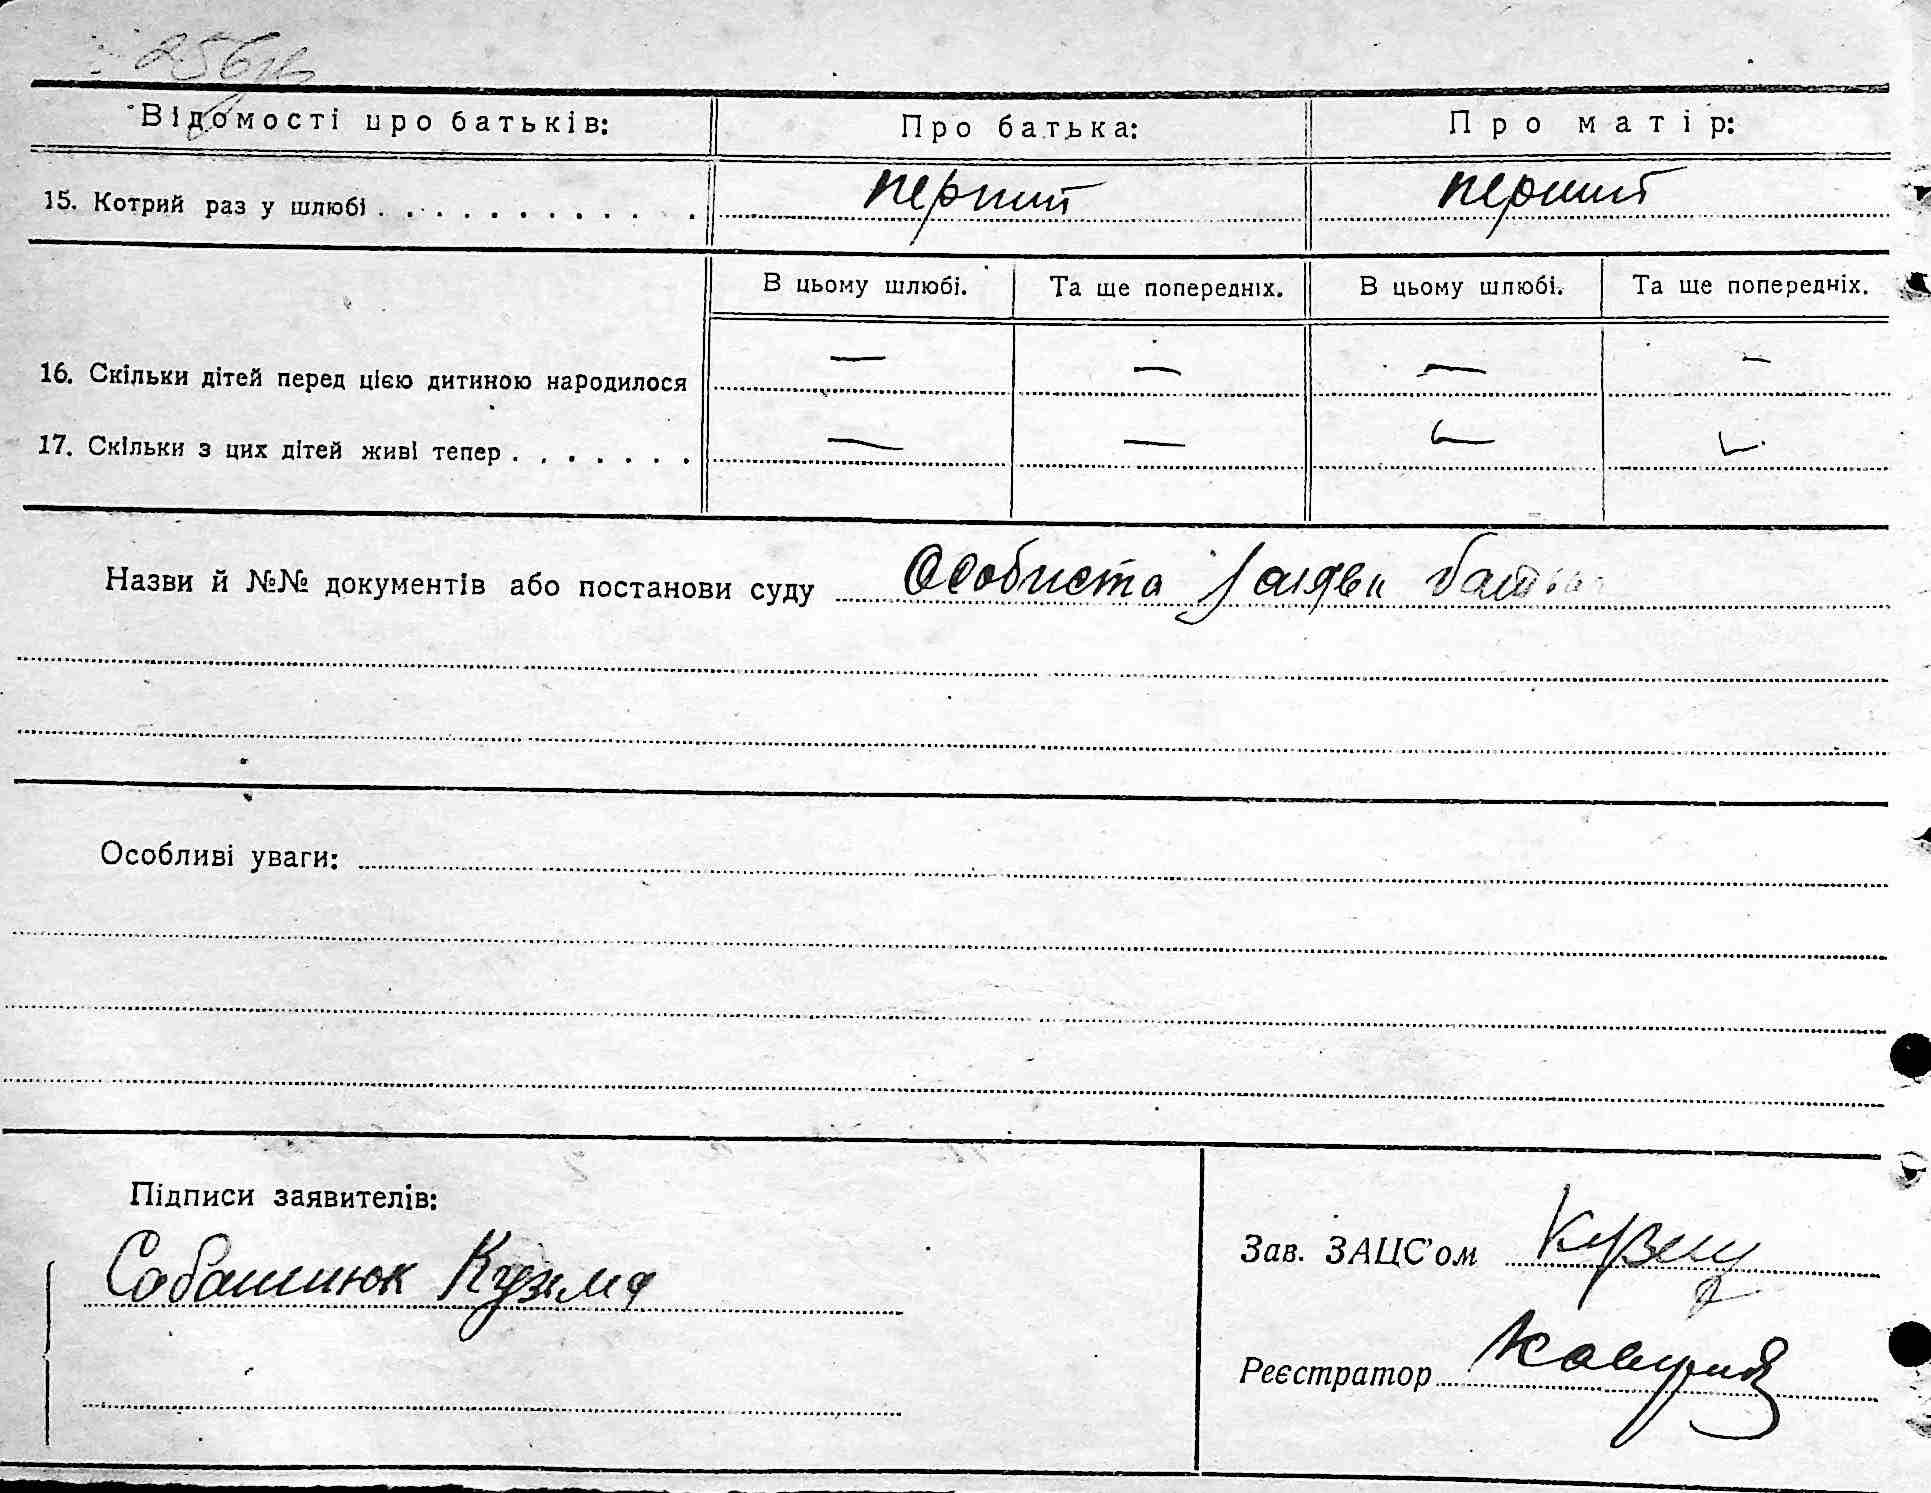 256
Відомості про батьків: Про батька: Про матір:
15. Котрий раз у шлюбі . . . . . . . . . . . . перший перший
В цьому шлюбі. Та ще попередніх. В цьому шлюбі. Та ще попередніх.
16. Скільки дітей перед цією дитиною народилося — — — —
17. Скільки з цих дітей живі тепер . . . . . . . — — — —
Назви й №№ документів або постанови суду Особиста заява
Особливі уваги:
Підписи заявителів:
Сабашнюк Кузьма
Зав. ЗАЦС'ом
Реєстратор